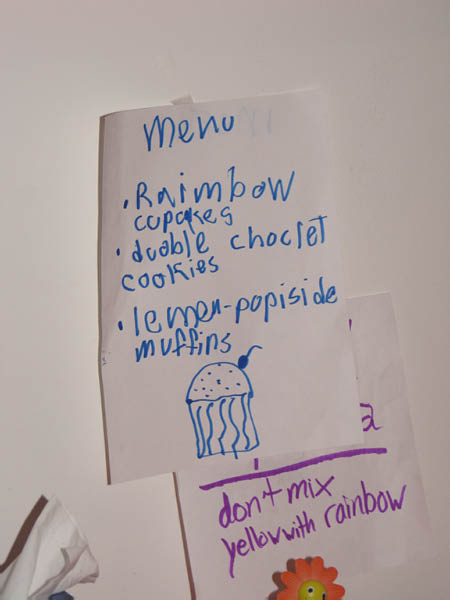 menu
• Raimbow
cupcakes
• duoble choclet
cookies
• lemen-popiside
muffins
a
don't mix
yellow with rainbow